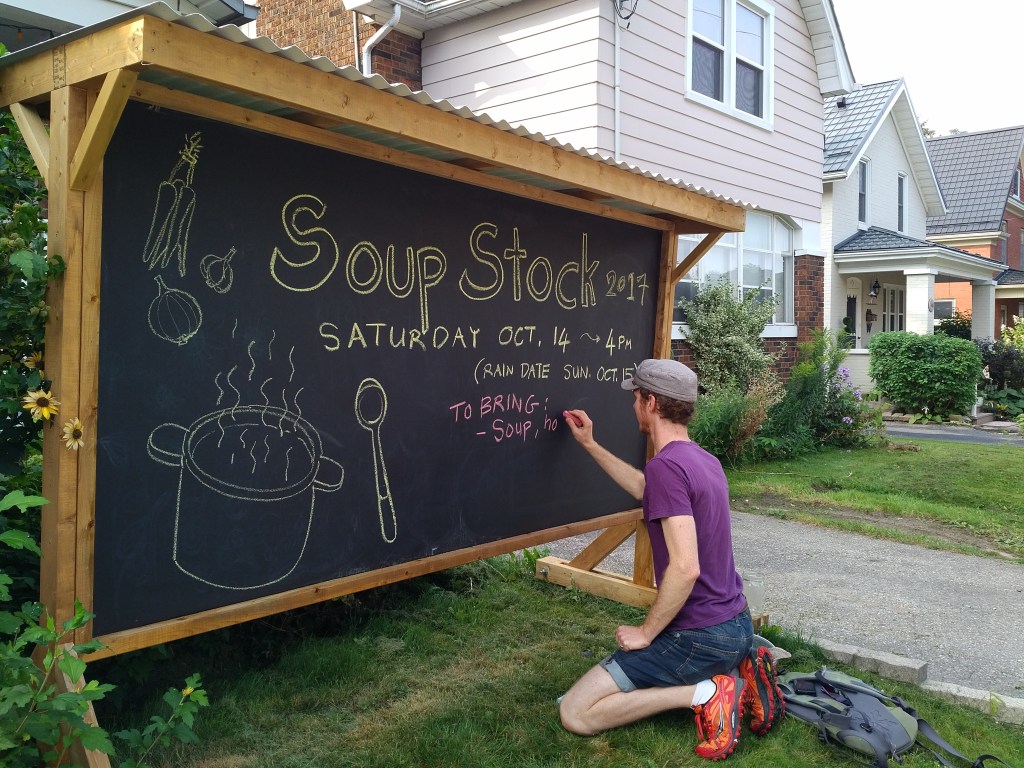 Soup Stock 2017
SATURDAY OCT. 14 ~> 4PM
(RAIN DATE SUN. OCT. 15)
TO BRING:
- SOUP, ho